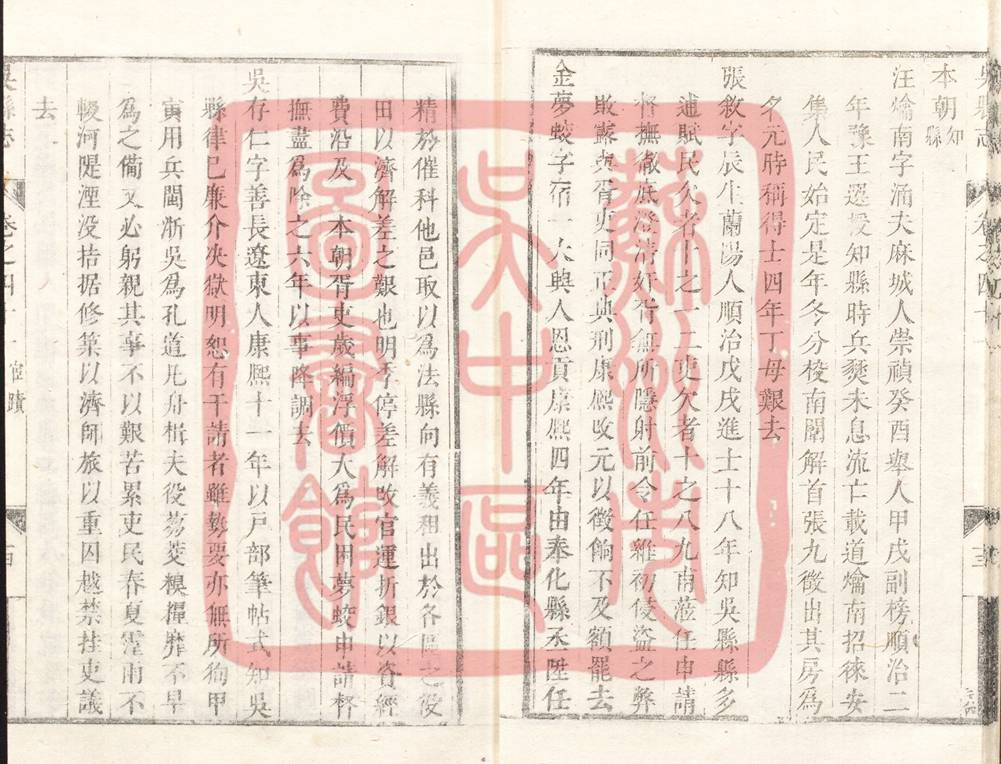 吳縣志 卷之四十一
本朝知縣
汪爚南字涌夫麻城人崇禎癸酉舉人甲戌副榜順治二
年豫王選授知縣時兵燹未息流亡載道爚南招徠安
集人民始定是年冬分校南闈解首張九徵出其房為
名元時稱得士四年丁母艱去
張敘字辰生蘭陽人順治戊戌進士十八年知吳縣縣多
逋賦民欠者十之一二吏欠者十之八九甫蒞任申請
督撫徹底澄清奸胥無所隱射前令任維初侵盜之弊
敗露與胥吏同正典刑康熙改元以徵餉不及額罷去
金夢蛟字 大興人恩貢康熙四年由奉化縣丞陞任
精於催科他邑取以為法縣向有義租出於各區之役
田以濟解差之艱也明季停差解改官運折銀以資經
費沿及 本朝胥吏歲編浮價大為民困夢蛟申請督
撫盡為除之六年以事降調去
吳存仁字善長遼東人康熙十一年以戶部筆帖式知吳
縣律己廉介决獄明恕有干請者雖勢要亦無所徇甲
寅用兵閩浙吳為孔道凡舟楫夫役芻茭糗糧靡不早
為之備又必躬親其事不以艱苦累吏民春夏霪雨不
輟河隄湮没拮据修築以濟師旅以重囚越禁挂吏議
去
吳縣志 卷之四十一 宦蹟